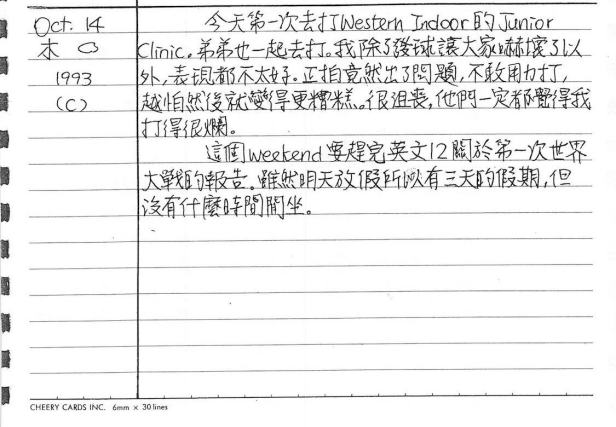 Oct. 14
木
1993
(C)
今天第一次去打Western Indoor的Junior
Clinic。弟弟也一起去打。我除了發球讓大家嚇壞了以
外,表現都不太好。正拍竟然出了問題,不敢用力打,
越怕然後就變得更糟糕。很沮喪,他們一定都覺得我
打得很爛。
這個weekend要趕完英文12關於第一次世界
大戰的報告。雖然明天放假所以有三天的假期,但
沒有什麼時間閒坐。
CHEERY CARDS INC. 6mm × 30 lines